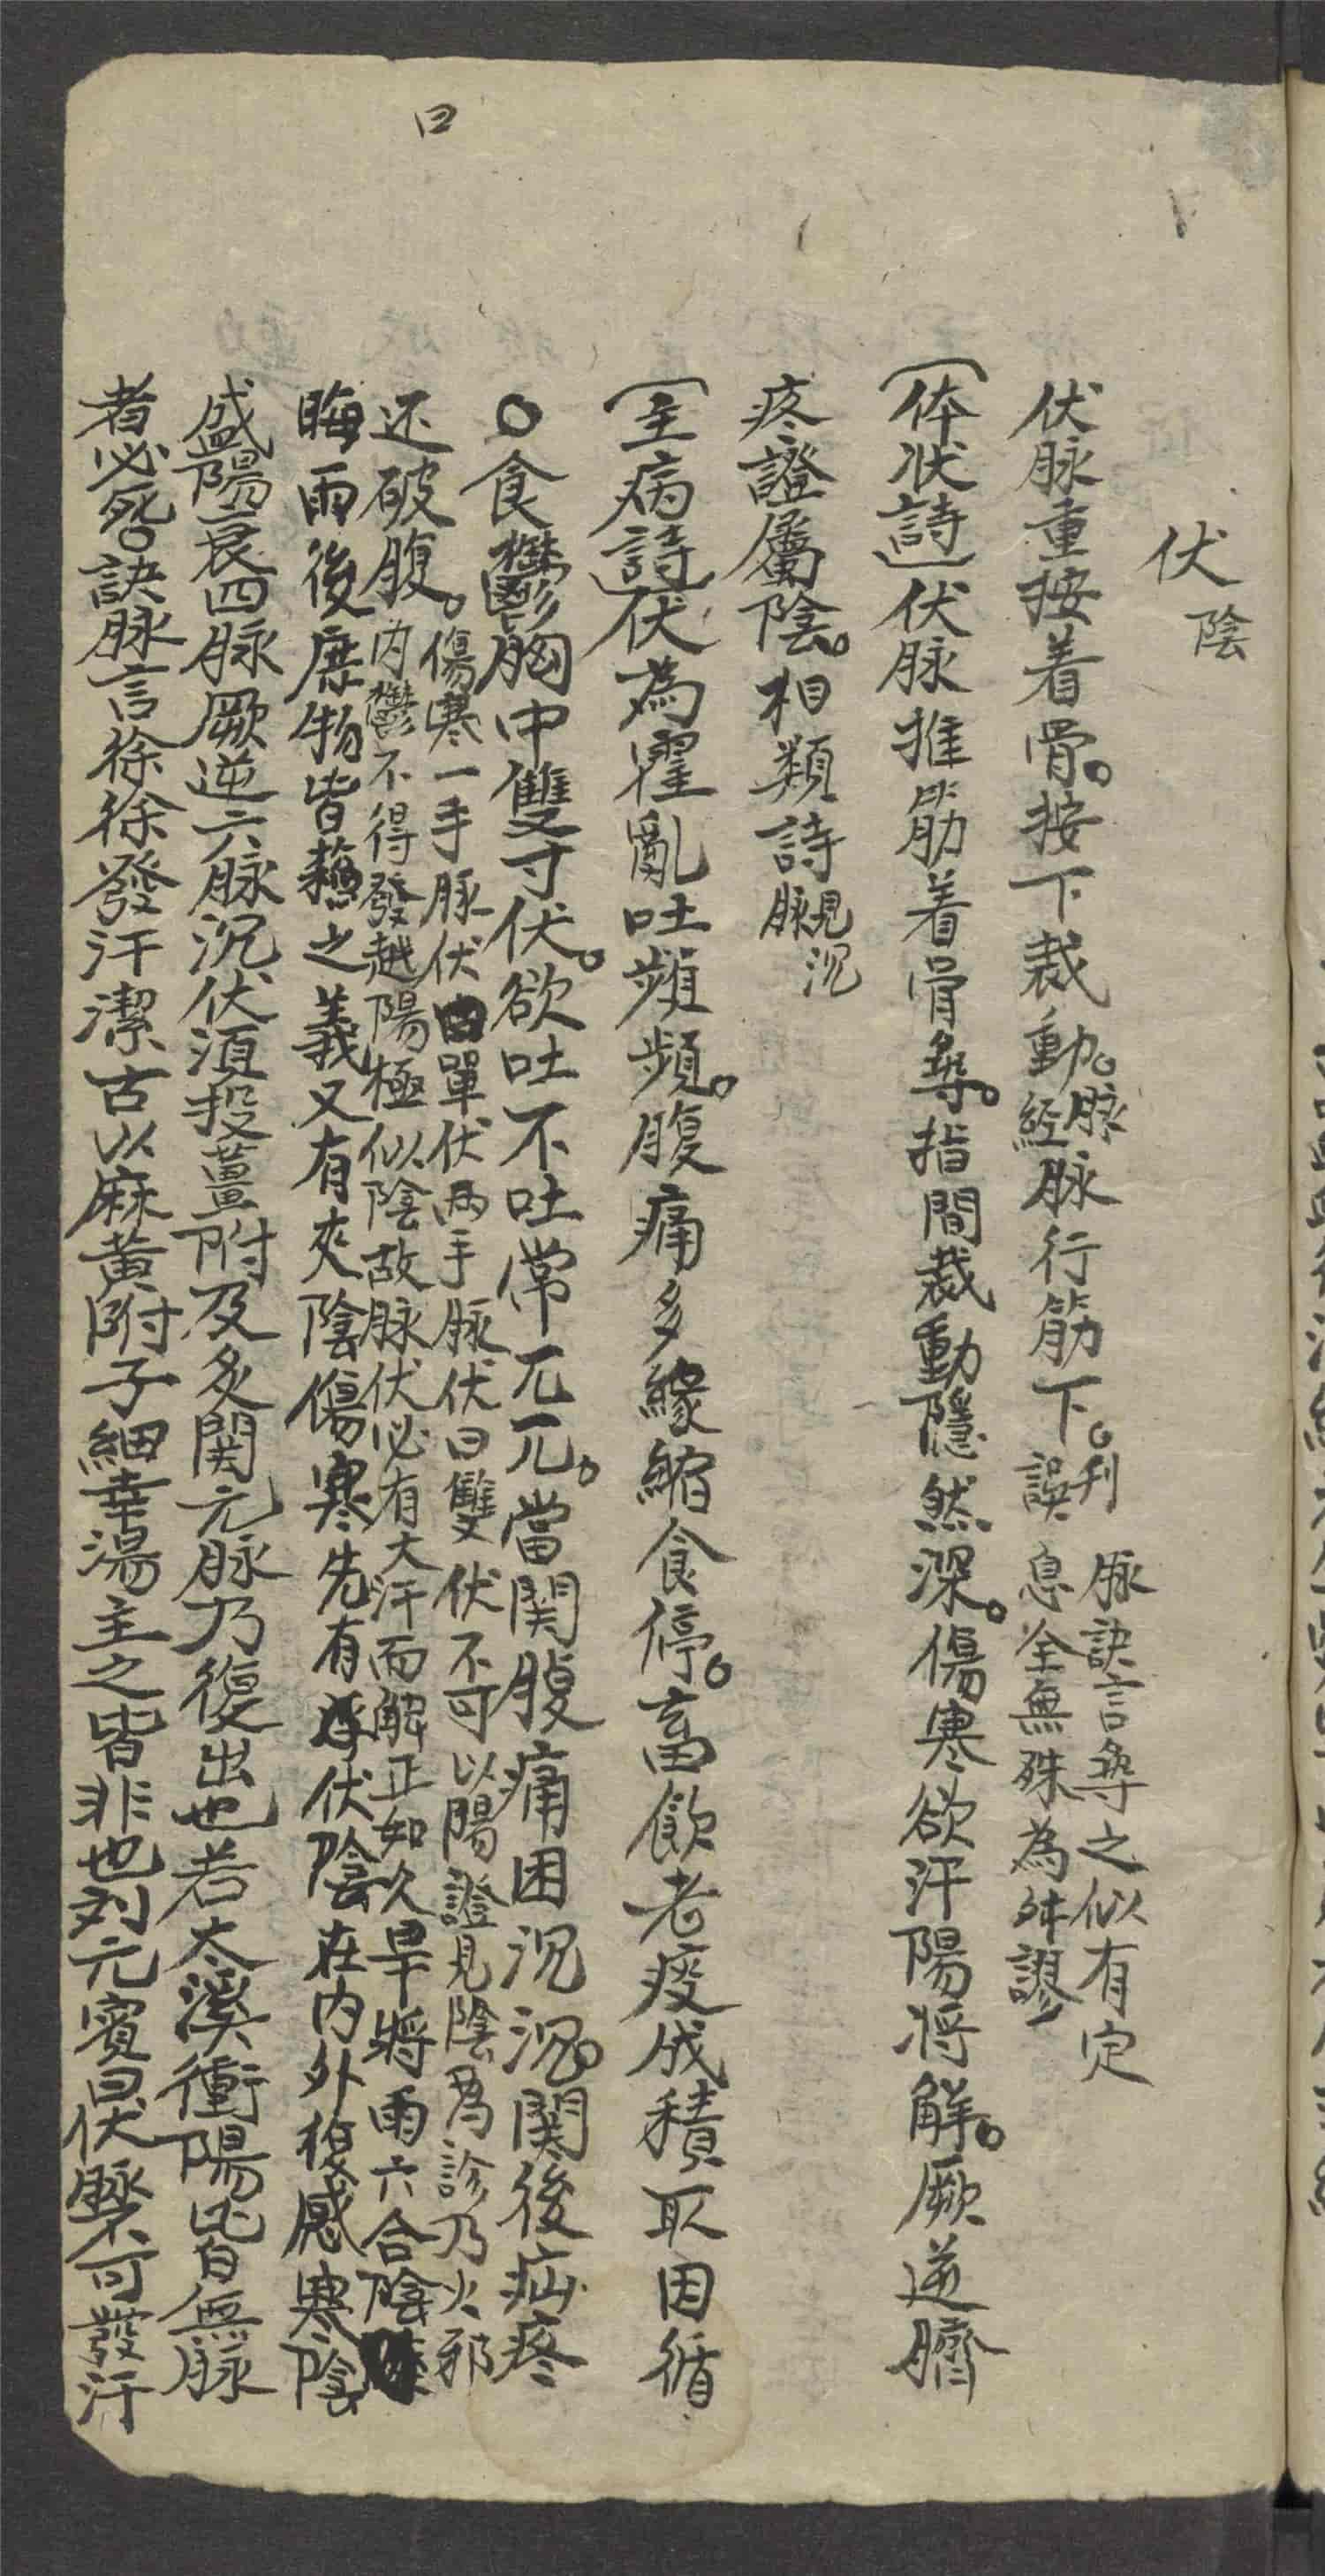 伏陰
伏脉重按着骨。按下裁動。脉經脉行筋下。刋誤脉訣言㝷之似有定息全無殊為舛謬
体狀詩伏脉推筋着骨㝷。指間裁動隱然深。傷寒欲汗陽将解。厥逆臍
疼證屬陰。相類詩脉見沉
主病詩伏為霍亂吐頻頻。腹痛多緣縮食停。畜飲老痰成積聚因循
○食鬱胸中雙寸伏。欲吐不吐常兀兀。當関腹痛困沉沉。関後疝疼
还破腹。傷寒一手脉伏曰單伏两手脉伏曰雙伏不可以陽證見陰為診乃火邪
内鬱不得發越陽極似陰故脉伏必有大汗而解正如久旱將雨六合陰
晦雨後庶物皆蘓之義又有夾陰傷寒先有伏陰在内外復感寒陰
盛陽衰四脉厥逆六脉沉伏須投薑附及炙関元脉乃復出也若太溪衝陽皆無脉
者必死。訣脉言徐徐發汗潔古以麻黄附子細幸湯主之皆非也刘元賓曰伏脉不可發汗
曰